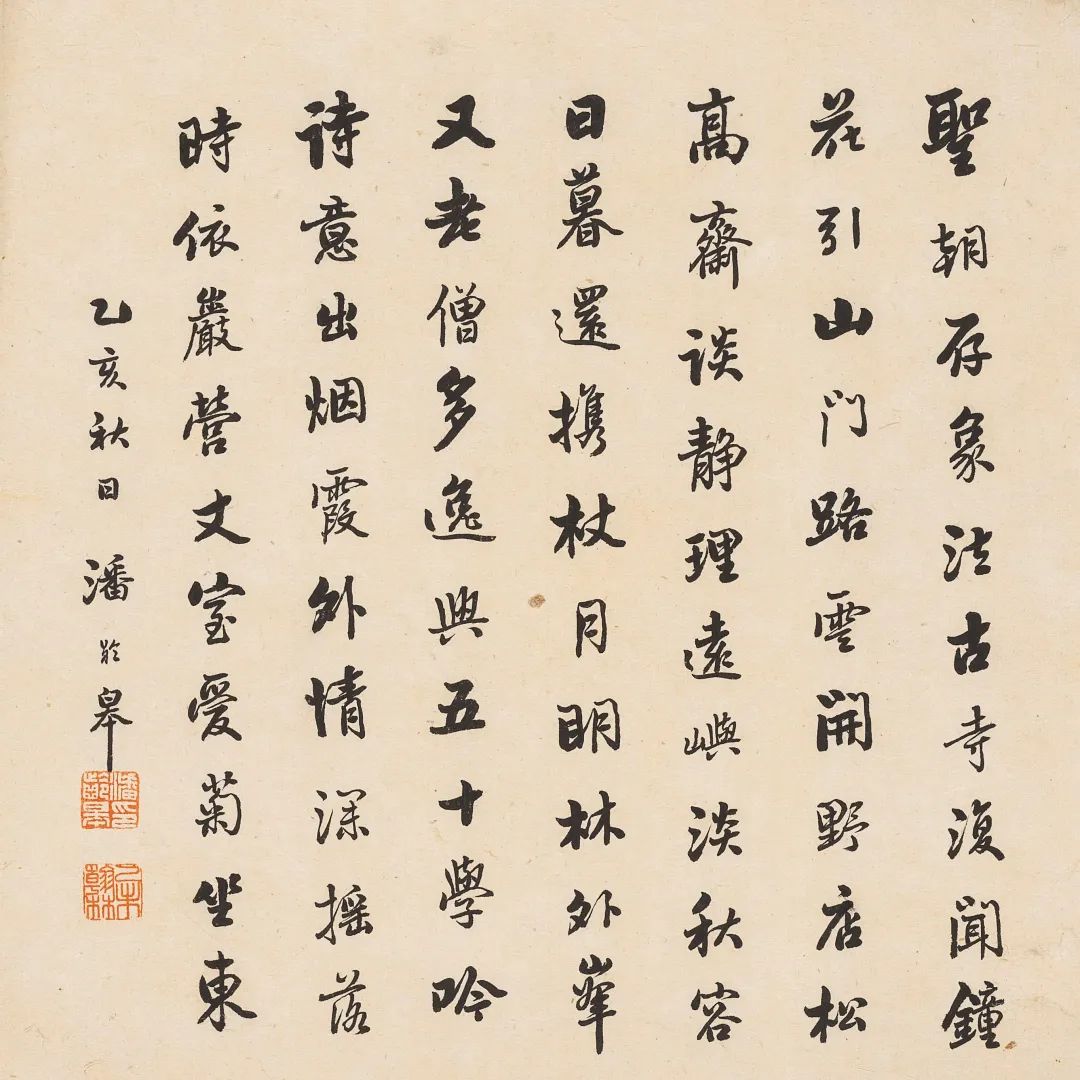 聖朝存象法古寺復聞鐘
花引山門路雲開野店松
髙齋談靜理遠嶼淡秋容
日暮還携杖月明林外峯
又老僧多逸興五十學吟
詩意出烟霞外情深摇落
時依巖營丈室愛菊坐東
乙亥秋日潘齡皋
潘印齡皋
乙未翰林